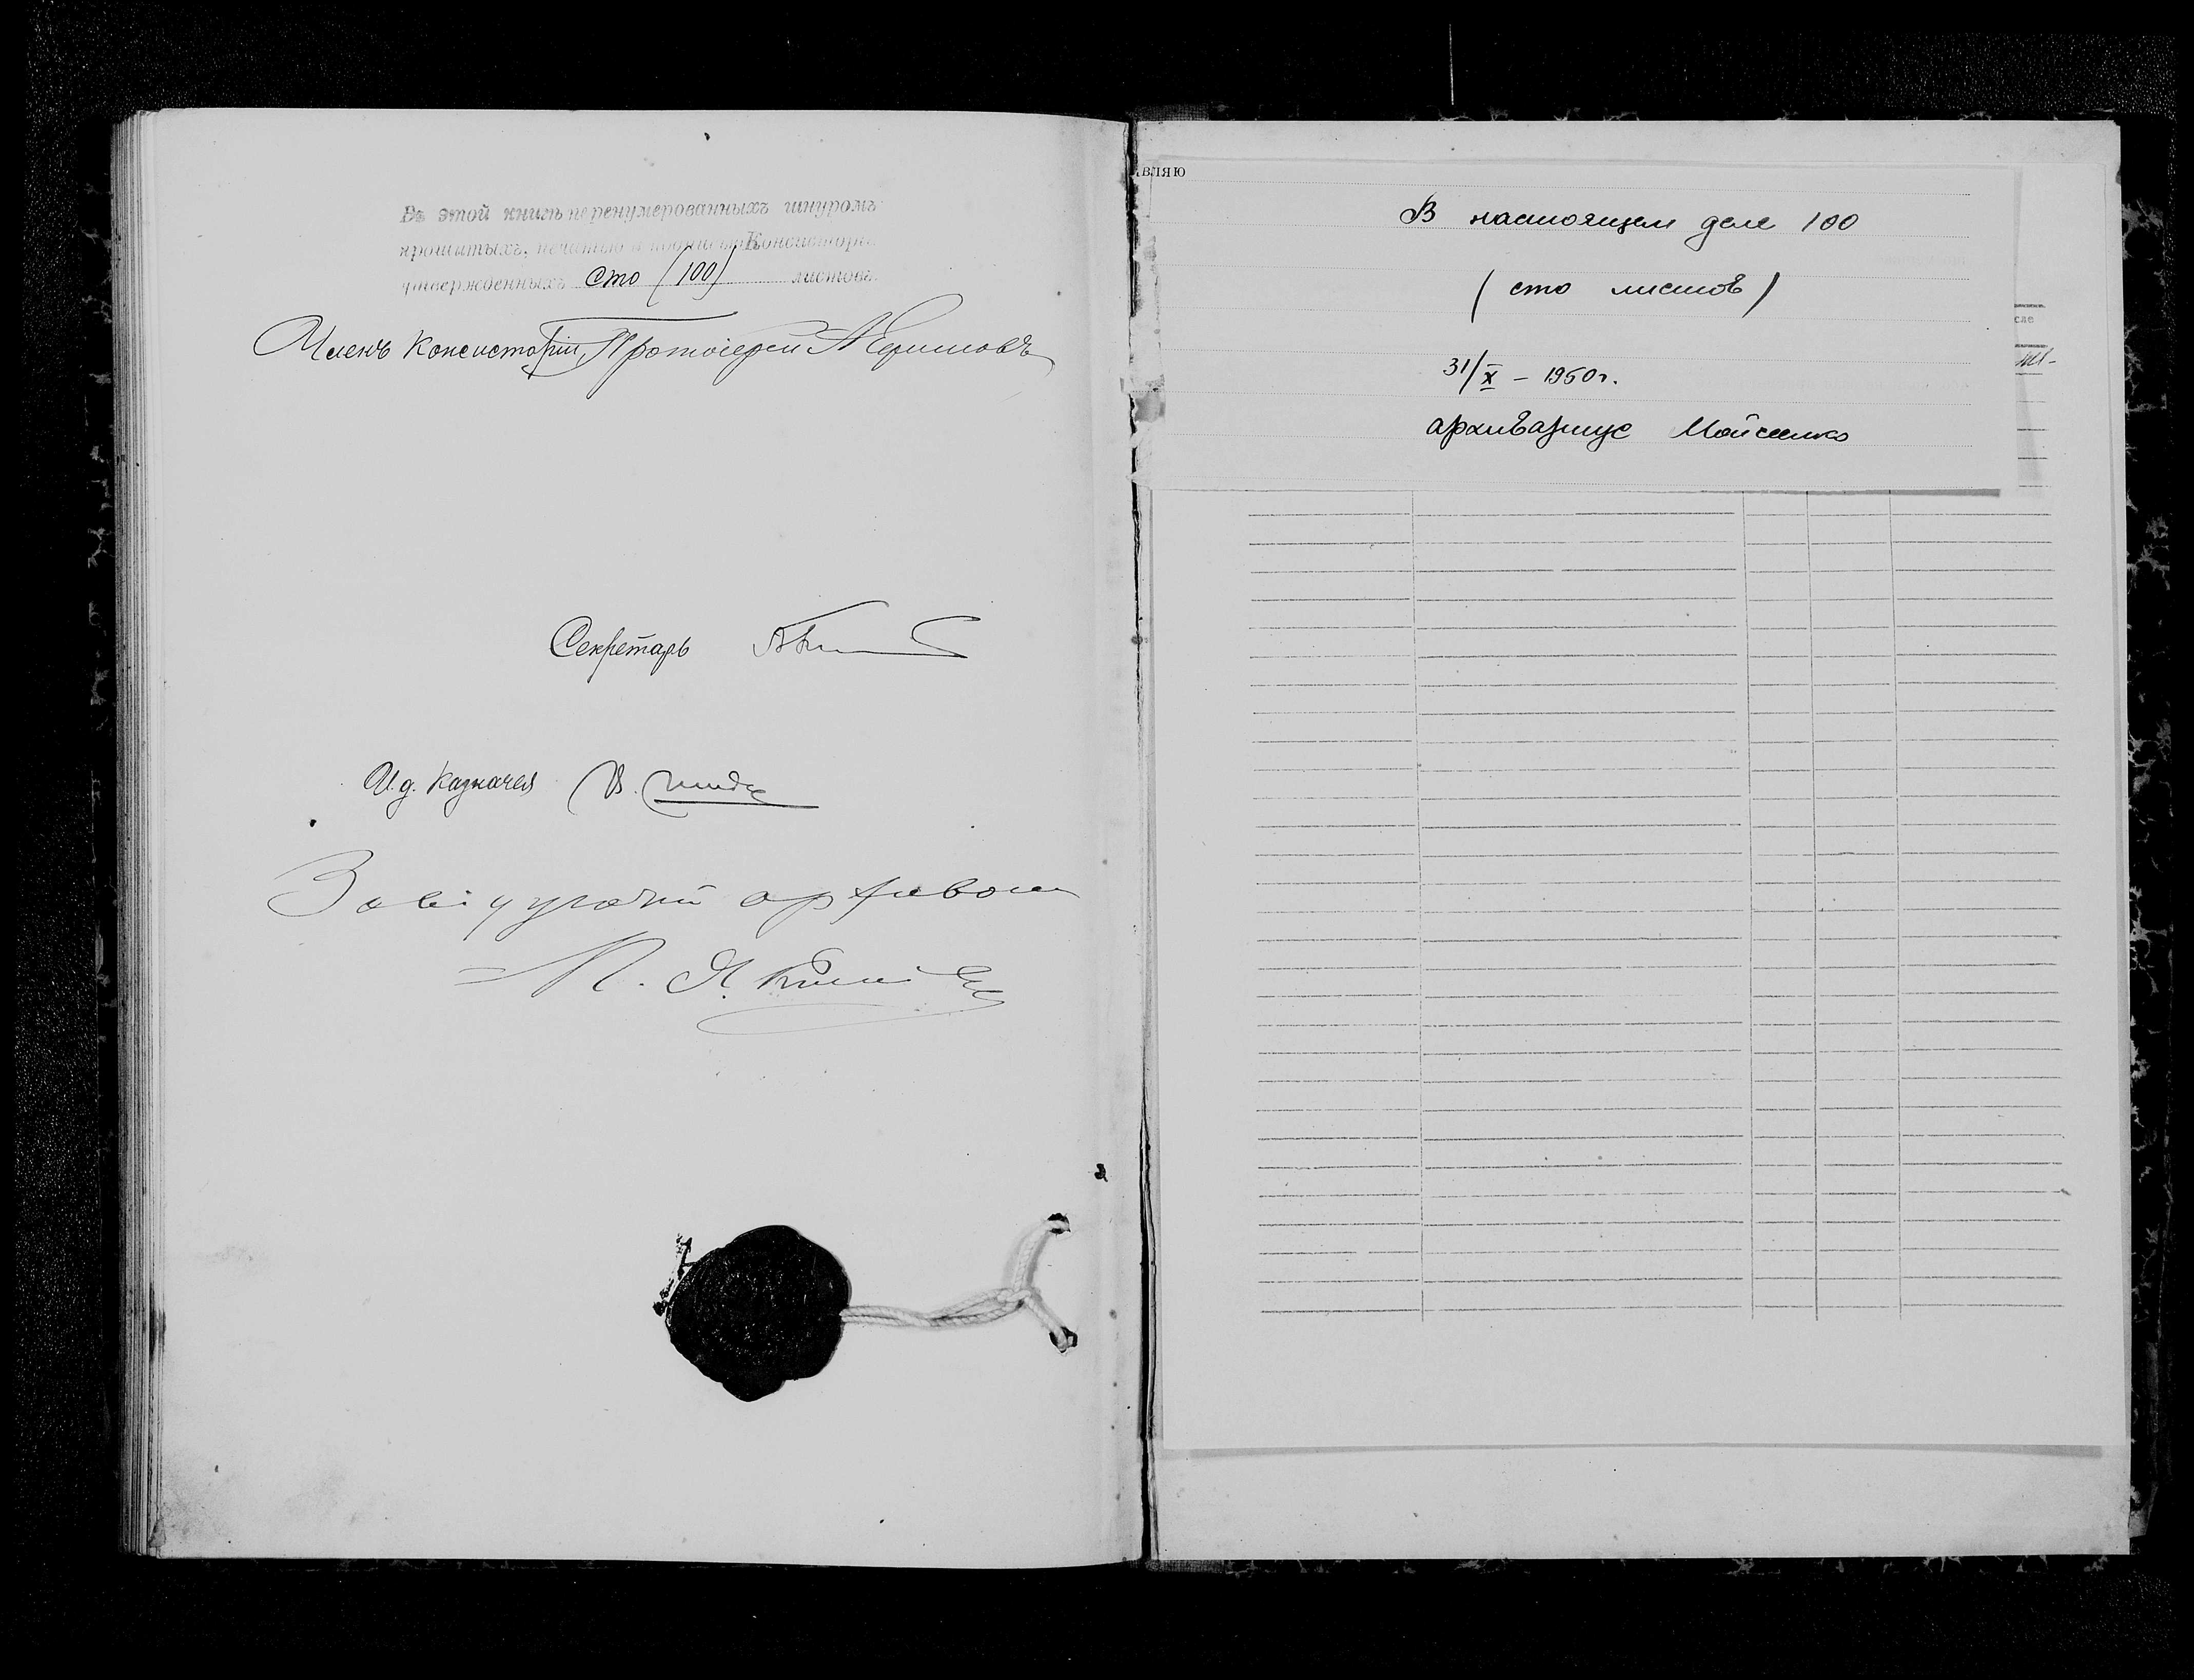 Въ этой книгѣ перенумерованныхъ шнуромъ
прошитыхъ, печатью и Консистор
утвержденныхъ сто (100) листовъ
Членъ Консисторіи, Протоіерей
Секретарь
И. д. Казначея В.
Завідуючий архивом
М. Я.
вляю
В настоящем деле 100
(сто листов)
31/X – 1950 г.
архивариус Мойсеенко